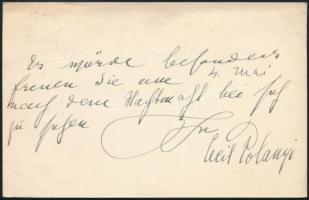 Es würde besonders
freuen Sie am 4. Mai
nach dem Nachtmahl bei sich
zu sehen
Ihre
Cecil Polanyi